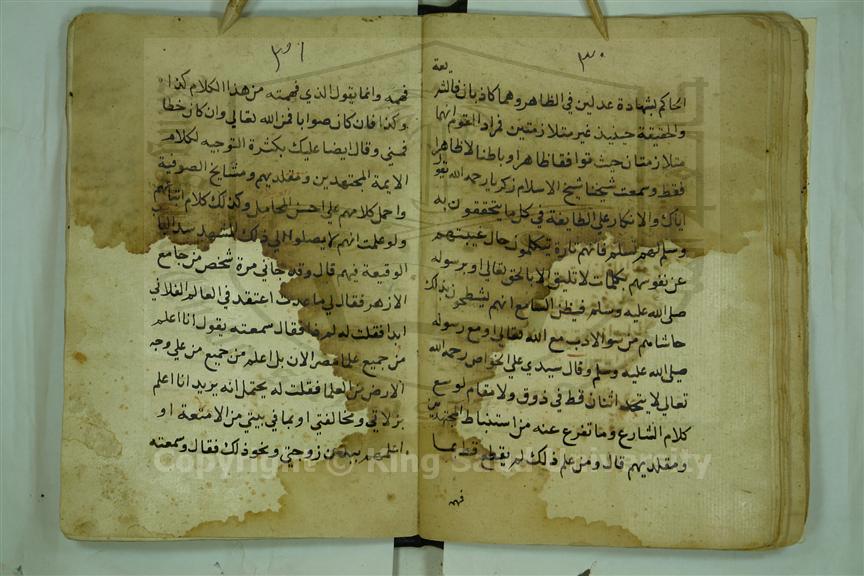 ٣٠
الحاكم بشهادة عدلين في الظاهر وهما كاذبان فالشر
يعة
والحقيقة حينيذ غير متلازمتين فمراد القوم انهما
متلازمتان حيث توافقا ظاهرا وباطنا لا ظاهرا
فقط وسمعت شيخنا شيخ الاسلام زكريا رحمه الله يقول
اياك والانكار علي الطايفة في كل ما يتحققون به
وسلم لهم تسلم فانهم تارة يتكلمون حال غيبتهم
عن نفوسهم بكلمات لا تليق الا بالحق تعالي او برسوله
صلي الله عليه وسلم فيظن السامع انهم بذلك
حاشاهم من سو الادب مع الله تعالي او مع رسوله
صلي الله عليه وسلم وقال سيدي علي الخواص رحمه الله
تعالي لا يتحد اثنان قط في ذوق ولا مقام لوسع
كلام الشارع وما تفرع عنه من استنباط المجتهدين
ومقلديهم قال ومن علم ذلك لم يقطع قط بما
فهمه
٣١
فهمه وانما يقول الذي فهمته من هذا الكلام كذا
وكذا فان كان صوابا فمن الله تعالي وان كان خطا
فمني وقال ايضا عليك بكثرة التوجيه لكلام
الايمة المجتهدين ومقلديهم ومشايخ الصوفية
واحمل كلامهم علي احسن المحامل وكذلك كلام اتباعهم
ولو علمت انهم لا يصلوا الي ذلك المشهد سدا لباب
الوقيعة فيهم قال وقد جاني مرة شخص من جامع
الازهر فقال لي ما عدت اعتقد في العالم الفلاني
ابدا فقلت له لم ذا فقال سمعته يقول انا اعلم
من جميع علما مصر الان بل اعلم من جميع من علي وجه
الارض من العلما فقلت له يحتمل انه يريد انا اعلم
بزلاتي ومخالفتي او بما في بيتي من الامتعة او
اعلمهم ببدن زوجتي ونحو ذلك فقال وسمعته
Copyright © King Saud University